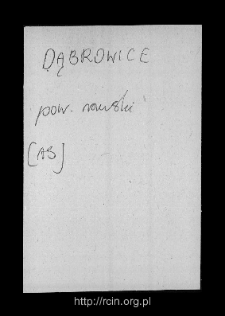 DĄBROWICE
pow. rawski
[AS]
http://rcin.org.pl